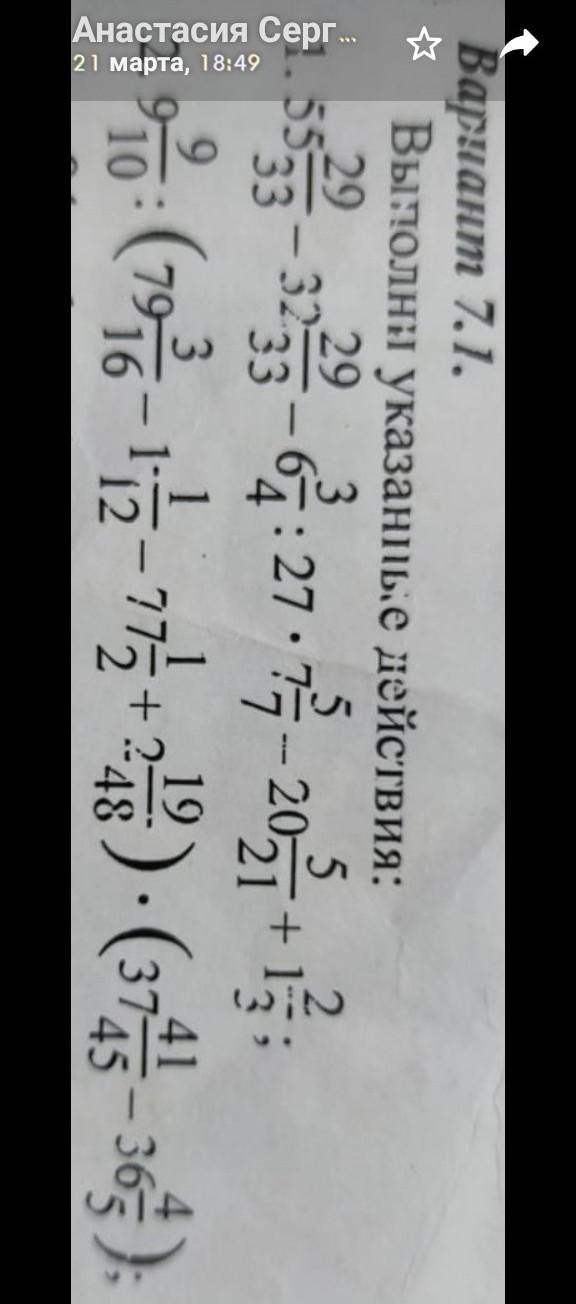 Анастасия Серг...
21 марта, 18:49
Вариант 7.1.
Выполни указанные действия:
1. 55 29/33 − 32 29/33 − 6 3/4 : 27 · 7 5/7 − 20 5/21 + 1 2/3;
2 9 9/10 : (79 3/16 − 1 1/12 − 77 1/2 + 2 19/48) · (37 41/45 − 36 4/5);